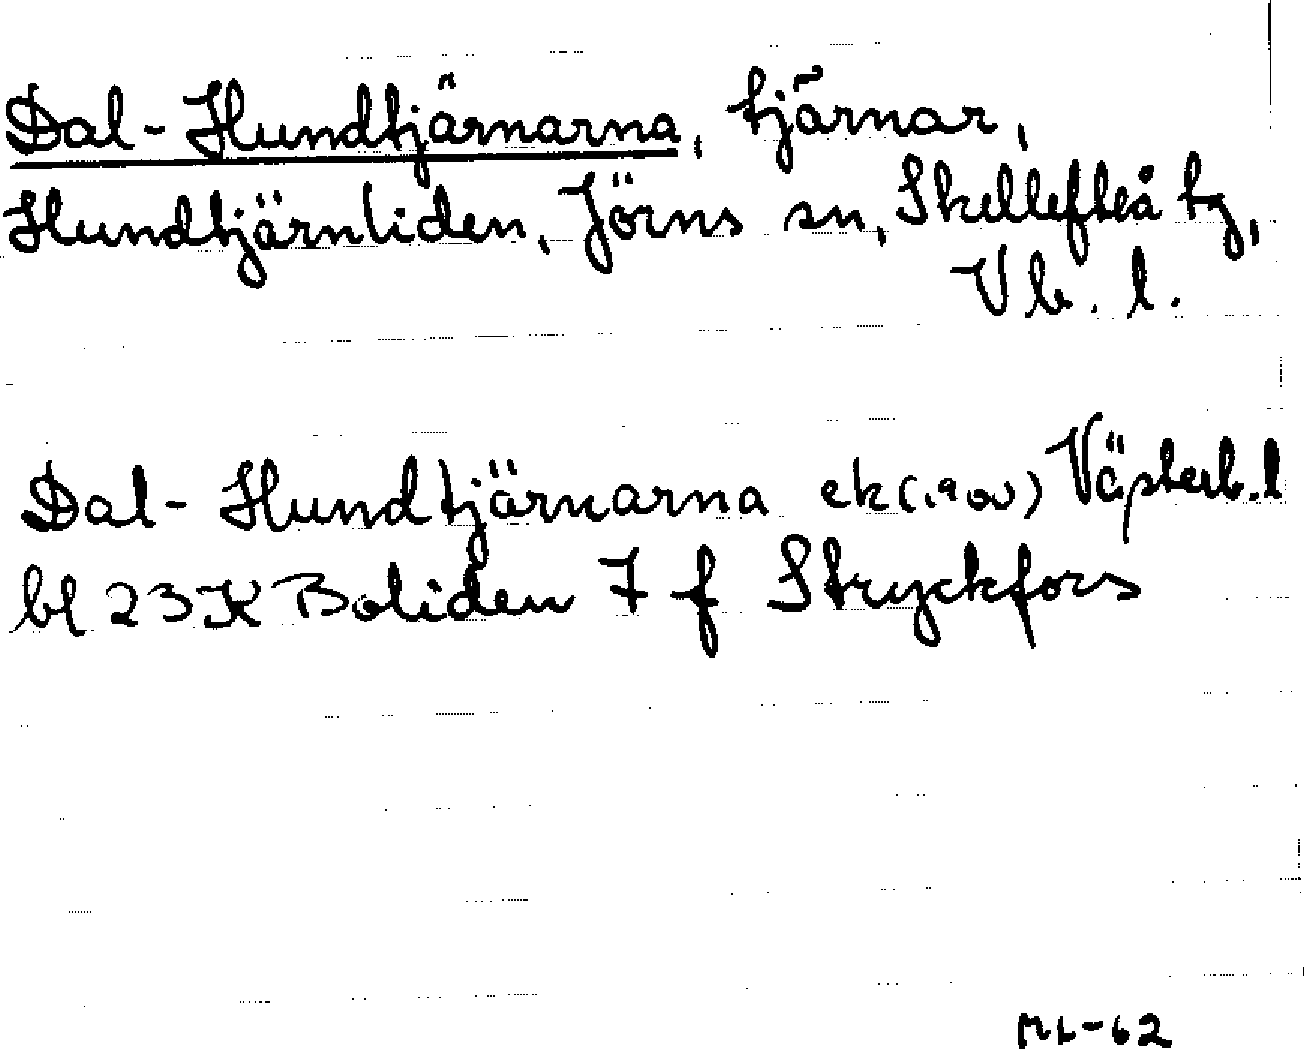 Dal-Hundtjärnarna, tjärnar,
Hundtjärnliden, Jörns sn, Skellefteå tg,
Vb. l.
Dal-Hundtjärnarna ek Västerb. l
bl 23K Boliden 7 f Stryckfors
ML-62